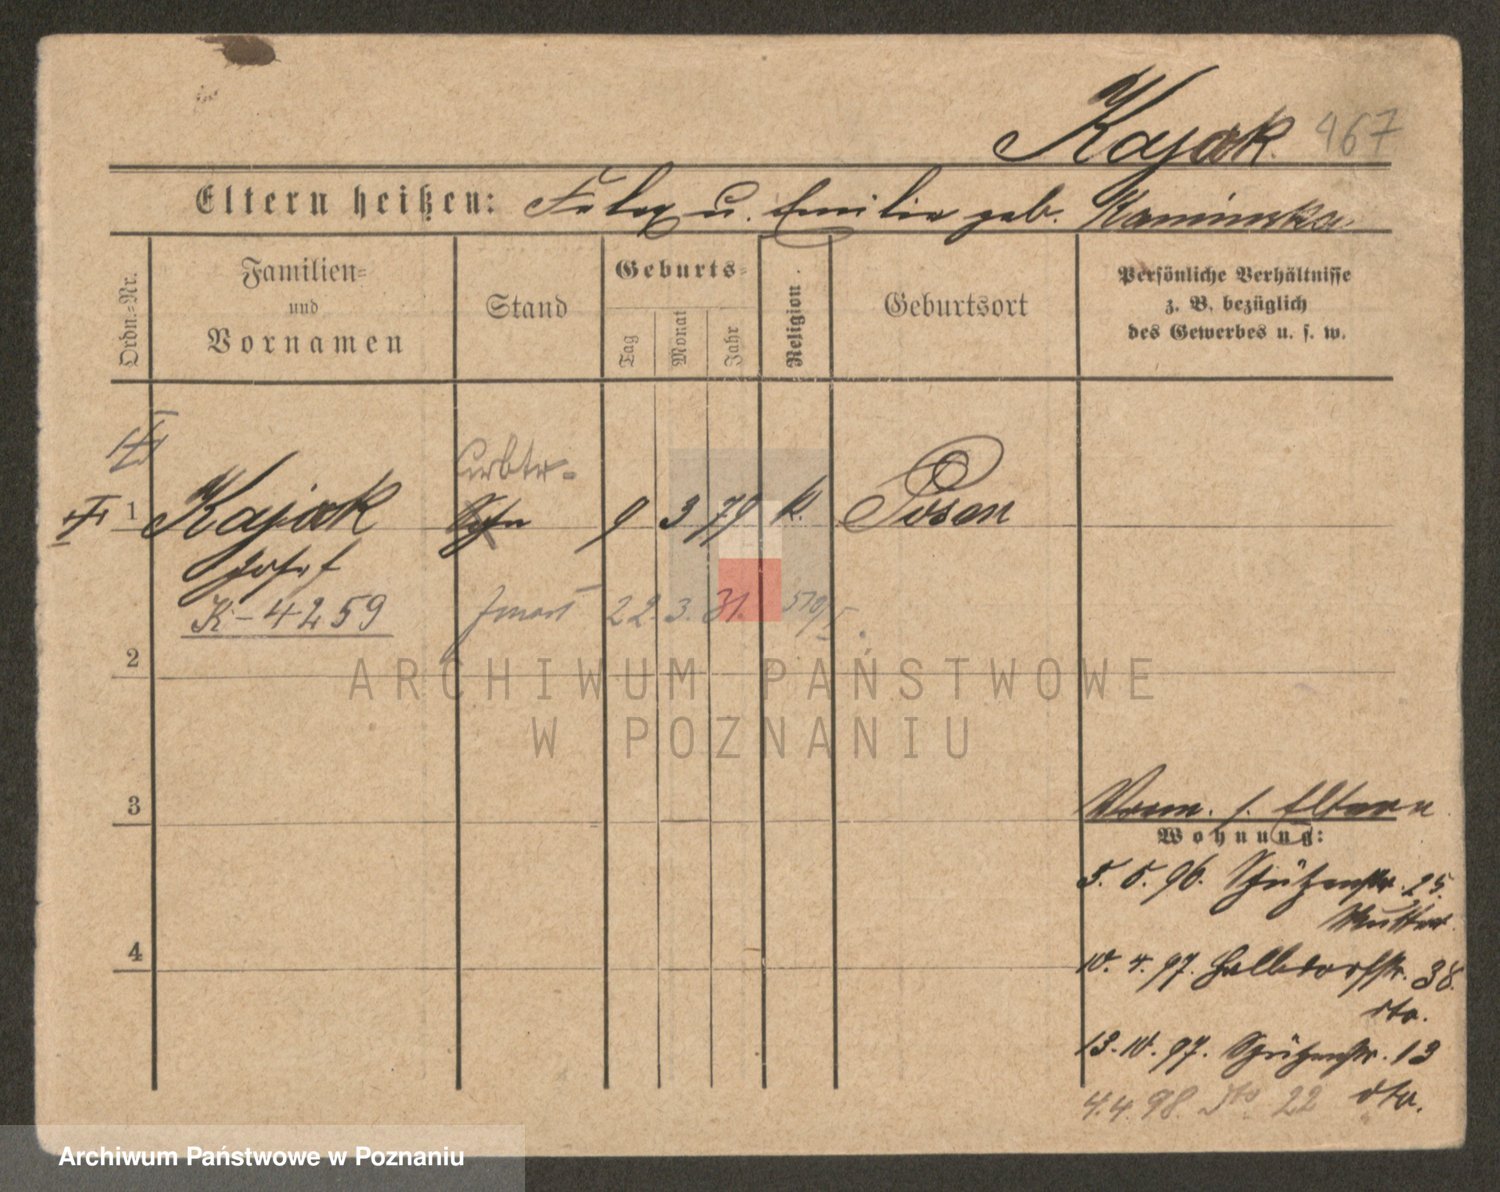 Kajak 467
Eltern heißen: Felix u. Emilie geb. Kaminska
Ordn.-Nr.
Familien-
und
Vornamen
Stand
Geburts-
Tag
Monat
Jahr
Religion.
Geburtsort
Persönliche Verhältnisse
z. B. bezüglich
des Gewerbes u. s. w.
Arbtr.
1 Kajak Sohn 9 3 79 k. Posen
Josef
K-4259 22. 3. 31.
2
ARCHIWUM PAŃSTWOWE
W POZNANIU
3
Vorm. s. Eltern
Wohnung:
5. 5. 96. Schützenstr. 25.
Mutter
4
10. 4. 97. Halbdorfstr. 38.
dto.
13. 10. 97. Schützenstr. 13
dto.
4. 4. 98. dto 22
Archiwum Państwowe w Poznaniu